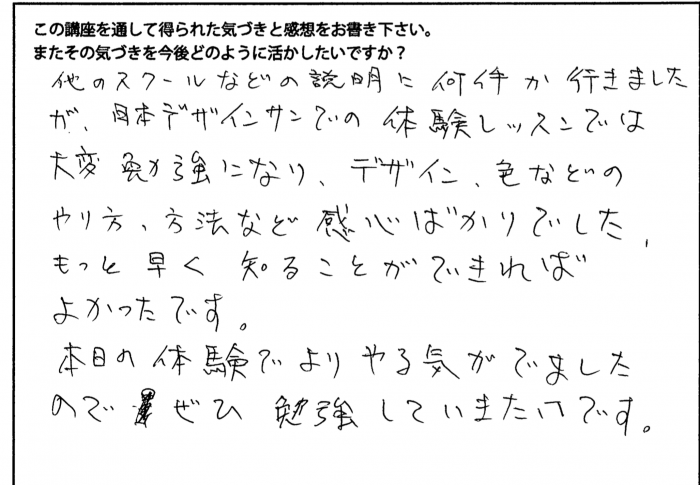 この講座を通して得られた気づきと感想をお書き下さい。
またその気づきを今後どのように活かしたいですか？
他のスクールなどの説明に何件か行きました
が、日本デザインサンでの体験レッスンでは
大変勉強になり、デザイン、色などの
やり方、方法など感心ばかりでした、
もっと早く知ることができれば
よかったです。
本日の体験でよりやる気がでました
のでぜひ勉強していきたいです。